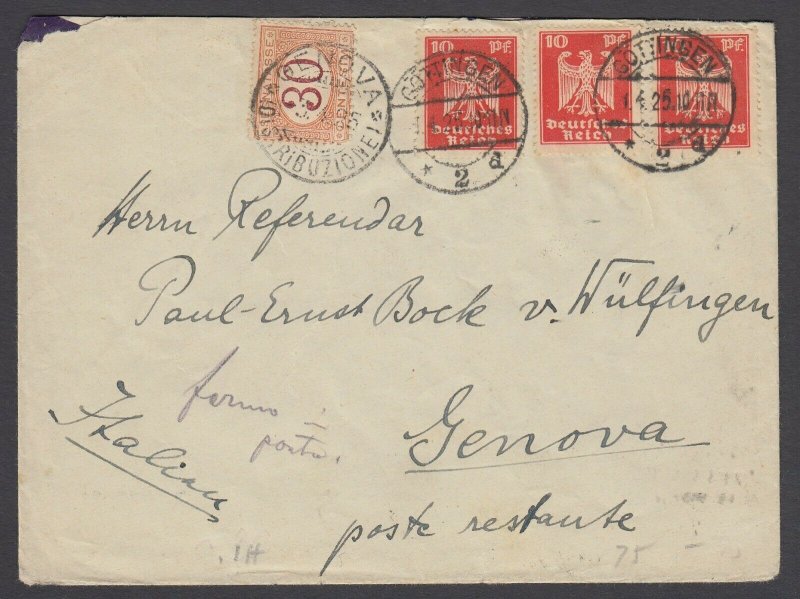 SEGNATASSE
30
CENTESIMI
GENOVA
(DISTRIBUZIONE)
10 Pf.
Deutsches
Reich
10
Deutsches
Reich
Pf.
Reich
GÖTTINGEN
* 2 d
GÖTTINGEN
1.4.25.10-11N
* 2 d
Herrn Referendar
Paul-Ernst Bock v. Wülfingen
fermo
posta.
Italien
Genova
poste restante
1H
75